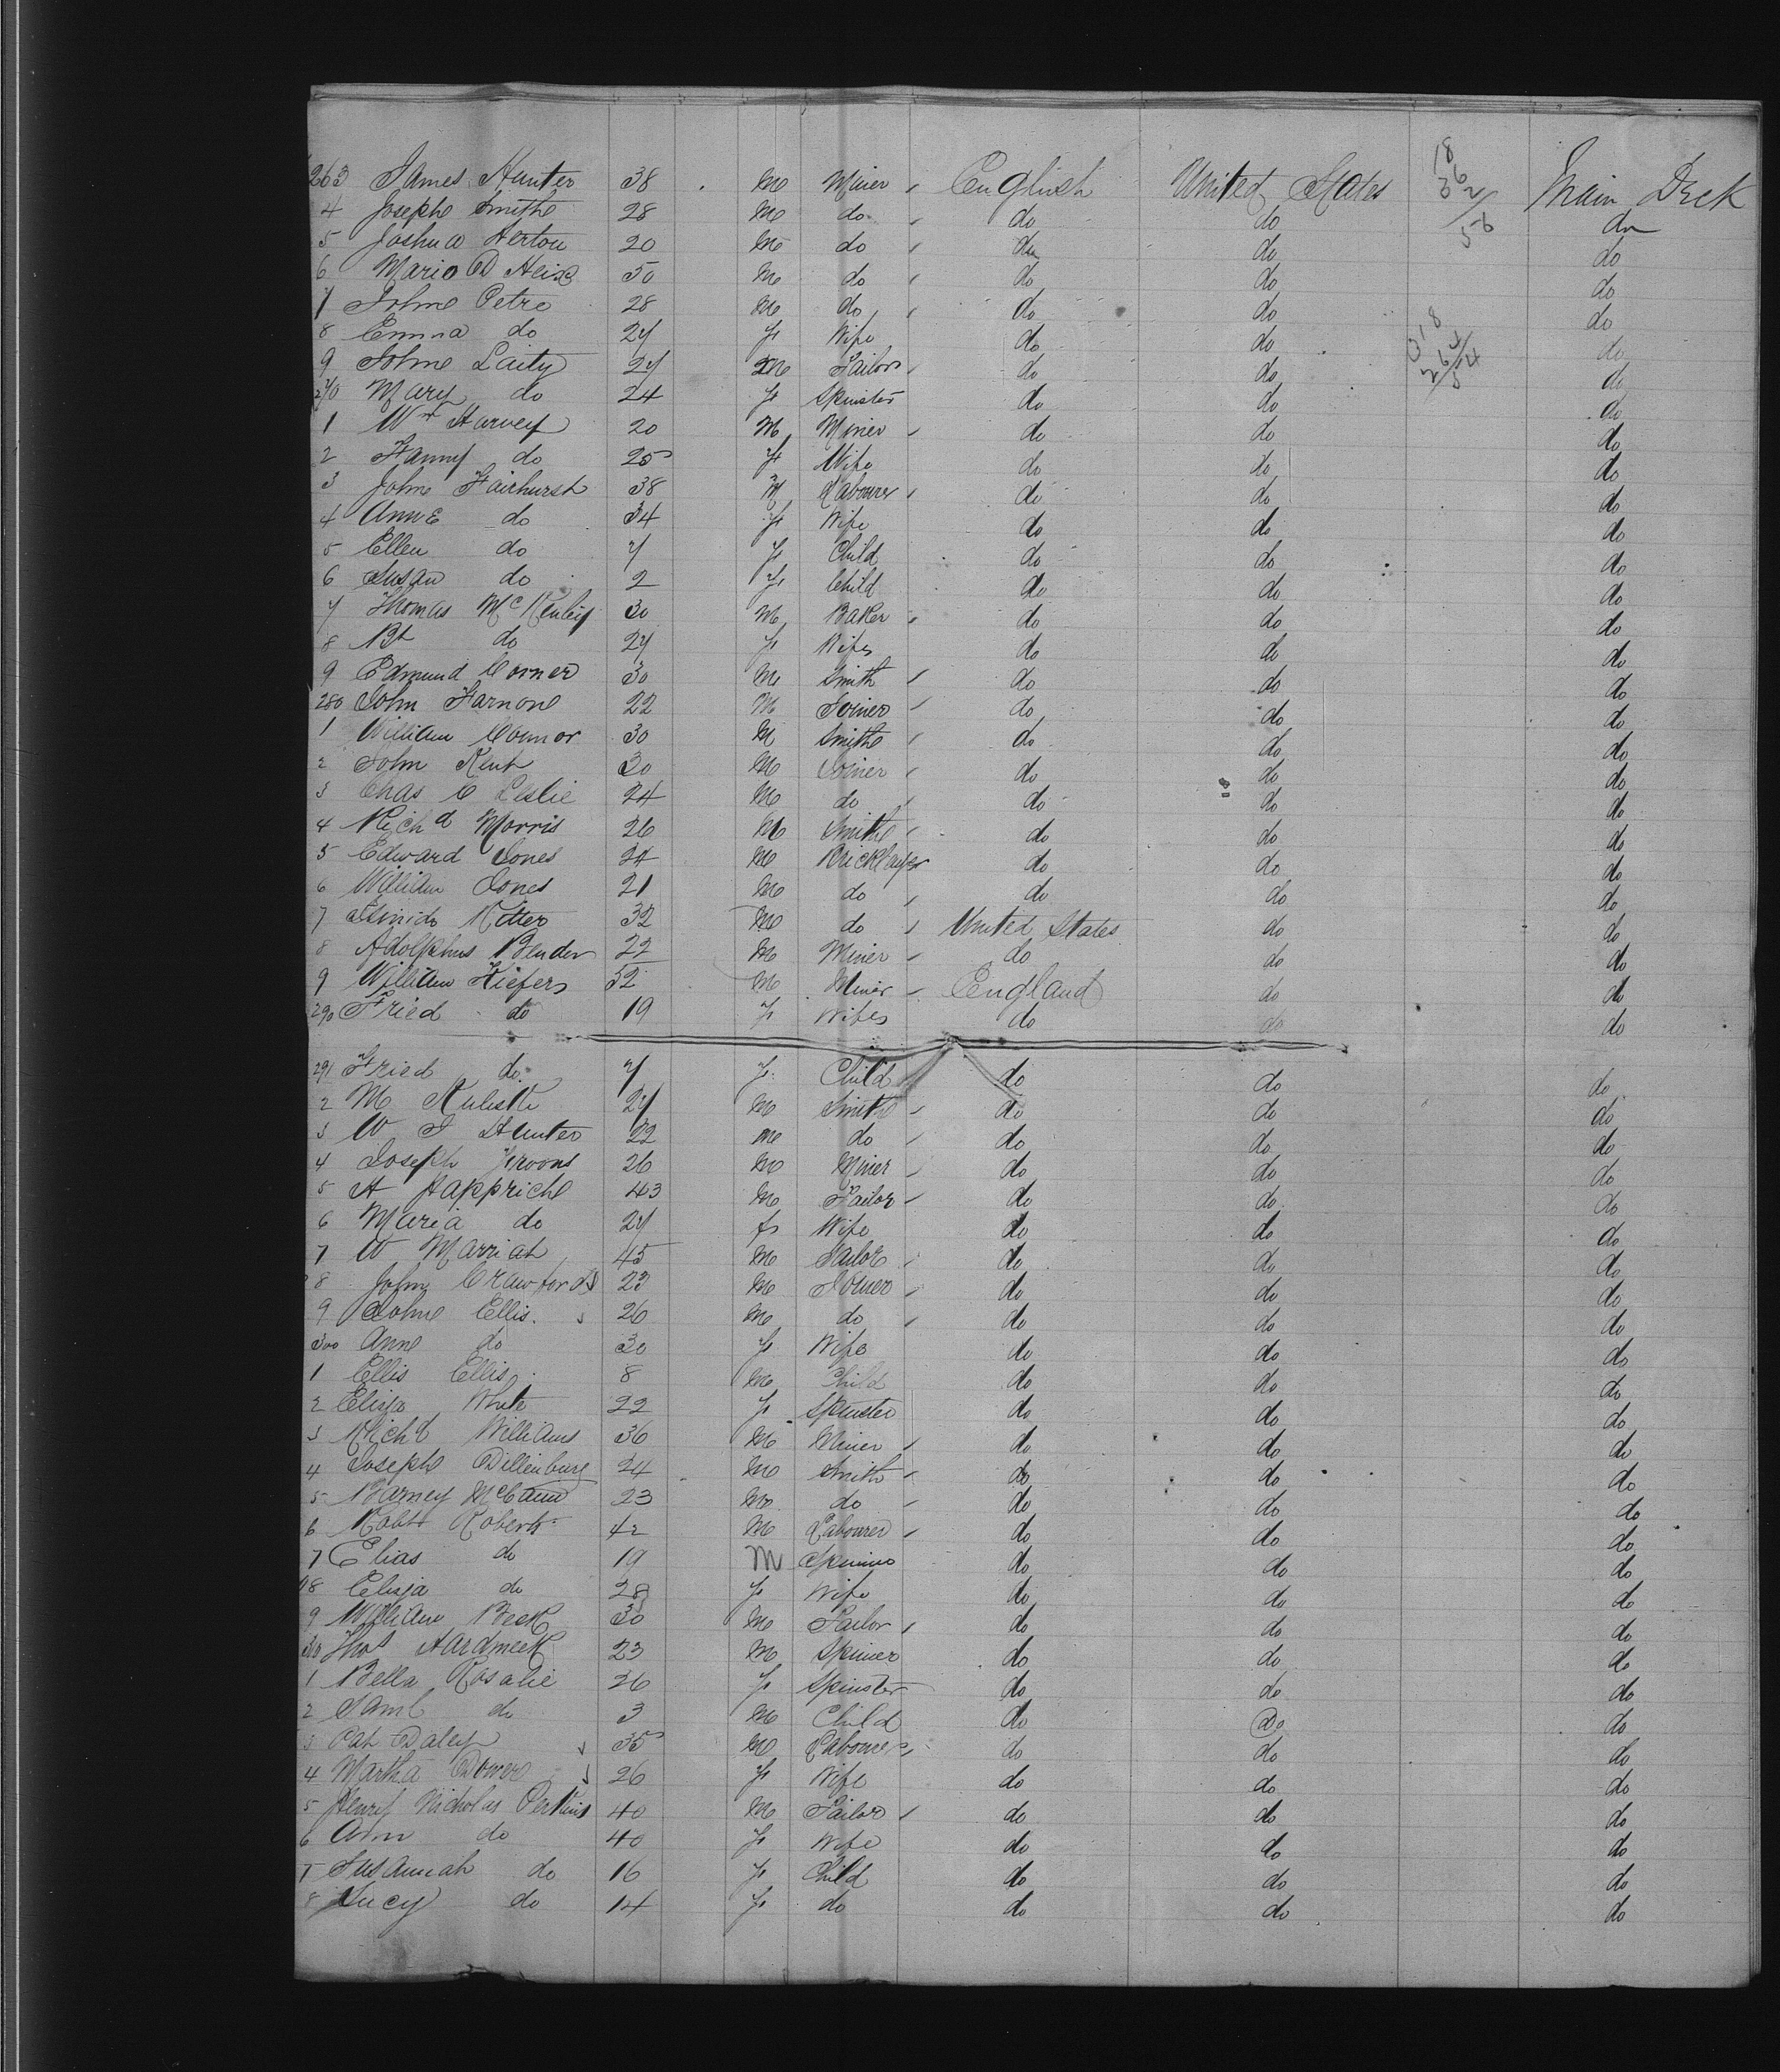 263 James Hunter 38 M Miner English United States Main Deck
4 Joseph Smith 28 M do do do do
5 Joshua Herton 20 M do do do do
6 Mario D 50 M do do do do
7 John Petre 28 M do do do do
8 Emma do 27 F Wife do do do
9 John Laity 27 M Tailor do do do
270 Mary do 24 F Spinster do do do
1 Wm Harvey 20 M Miner do do do
2 Fanny do 25 F Wife do do do
3 John Fairhurst 38 M Labourer do do do
4 Ann E do 34 F Wife do do do
5 Ellen do 7 F Child do do do
6 Susan do 2 F Child do do do
7 Thomas McKenley 30 M Baker do do do
8 Bt do 27 F Wife do do do
9 Edmund Corner 30 M Smith do do do
280 John Farnone 22 M Joiner do do do
1 William Connor 30 M Smith do do do
2 John Kent 30 M Joiner do do do
3 Chas C Leslie 24 M do do do do
4 Richd Morris 26 M Smith do do do
5 Edward Jones 24 M Bricklayer do do do
6 William Jones 21 M do do do do
7 32 M do United States do do
8 Adolphus Bender 22 M Miner do do do
9 William Kiefers 52 M Miner England do do
290 Fried do 19 F Wife do do do
291 Fried do 7 F Child do do do
2 M 27 M Smith do do do
3 W J Hunter 22 M do do do do
4 Joseph 26 M Miner do do do
5 A Happrich 43 M Tailor do do do
6 Maria do 27 F Wife do do do
7 W Marriah 45 M Tailor do do do
8 John Crawford 23 M Joiner do do do
9 John Ellis 26 M do do do do
300 Anne do 30 F Wife do do do
1 Ellis Ellis 8 M Child do do do
2 Eliza White 22 F Spinster do do do
3 Richd Williams 36 M Miner do do do
4 Joseph Dillenburg 24 M Smith do do do
5 Barney McCann 23 M do do do do
6 Robt Roberts 42 M Labourer do do do
7 Elias do 19 M do do do
8 Eliza do 28 F Wife do do do
9 William Beek 30 M Tailor do do do
310 Thos Hardmeek 23 M Spiner do do do
1 Bella Rosalie 26 F Spinster do do do
2 Saml do 3 M Child do Do do
3 Pat Daley 35 M Labourer do do do
4 Martha Dower 26 F Wife do do do
5 Henry Nicholas Perkins 40 M Tailor do do do
6 Ann do 40 F Wife do do do
7 Susannah do 16 F Child do do do
8 Lucy do 14 F do do do do